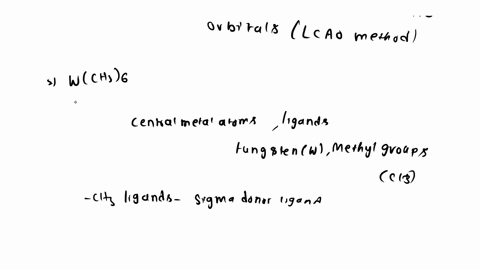 orbitals (LCAO method)
s) W(CH3)6
central metal atoms, ligands
tungsten(W), Methyl groups
(CH3)
-CH3 ligands- sigma donor ligand